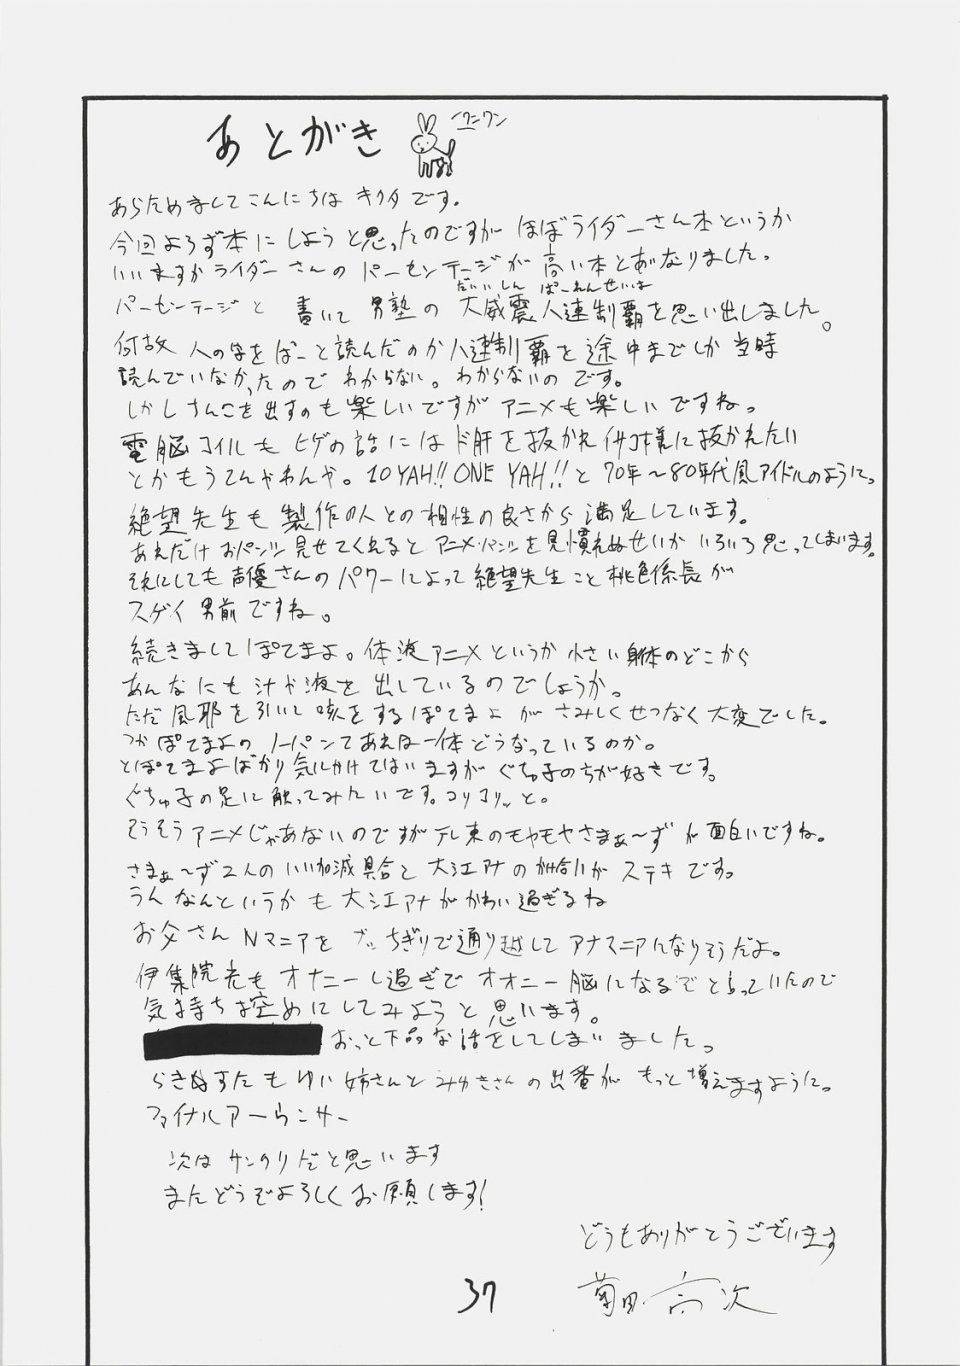 あとがき
ワンワン
あらためましてこんにちは キクタです。
今回よろず本にしようと思ったのですが ほぼライダーさん本というか
いいますかライダーさんの パーセンテージが 高い本とあいなりました。
パーセンテージと 書いて 男塾の 大威震八連制覇を思い出しました。
だいいしん ぱーれんせいは
何故 八の字をぱーと読んだのか八連制覇を途中までしか当時
読んでいなかったので わからない。わからないのです。
しかしさんこを出すのも楽しいですが アニメも楽しいですね。
電脳コイルも ヒゲの話にはド肝を抜かれ イサコ様に抜かれたい
とかもうてんやわんや。10 YAH!! ONE YAH!! と 70年〜80年代風アイドルのように。
絶望先生も 製作の人との相性の良さから 満足しています。
あれだけ おパンツ見せてくれると アニメ・パンツを見慣れぬせいか いろいろ思ってしまいます。
それにしても声優さんのパワーによって絶望先生こと桃色係長が
スゲイ男前ですね。
続きましてぽてまよ。体液アニメというか 小さい身体のどこから
あんなにも汁や液を出しているのでしょうか。
ただ風邪を引いて咳をするぽてまよ がさみしくせつなく大変でした。
つかぽてまよの ノーパンてあれは一体どうなっているのか。
とぽてまよばかり気にかけてはいますが ぐちゅ子のちが好きです。
ぐちゅ子の足に触ってみたいです。コリコリッと。
そうそうアニメじゃあないのですがテレ東のモヤモヤさまぁ〜ずが面白いですね。
さまぁ〜ず2人のいい加減具合と 大江アナの 併合いが ステキです。
うん なんというかも 大江アナがかわい過ぎるね
お父さん Nマニアを ブッちぎりで通り越して アナマニアになりそうだよ。
伊集院光もオナニーし過ぎでオナニー脳になるでと言っていたので
気持ち控めにしてみようと思います。
おっと下品な話をしてしまいました。
らき☆すたも ゆい姉さんとみゆきさんの出番が もっと増えますように。
ファイナルアーウンサー
次は サンクリだと思います
またどうぞよろしくお願します!
どうもありがとうございます
菊田・高次
37